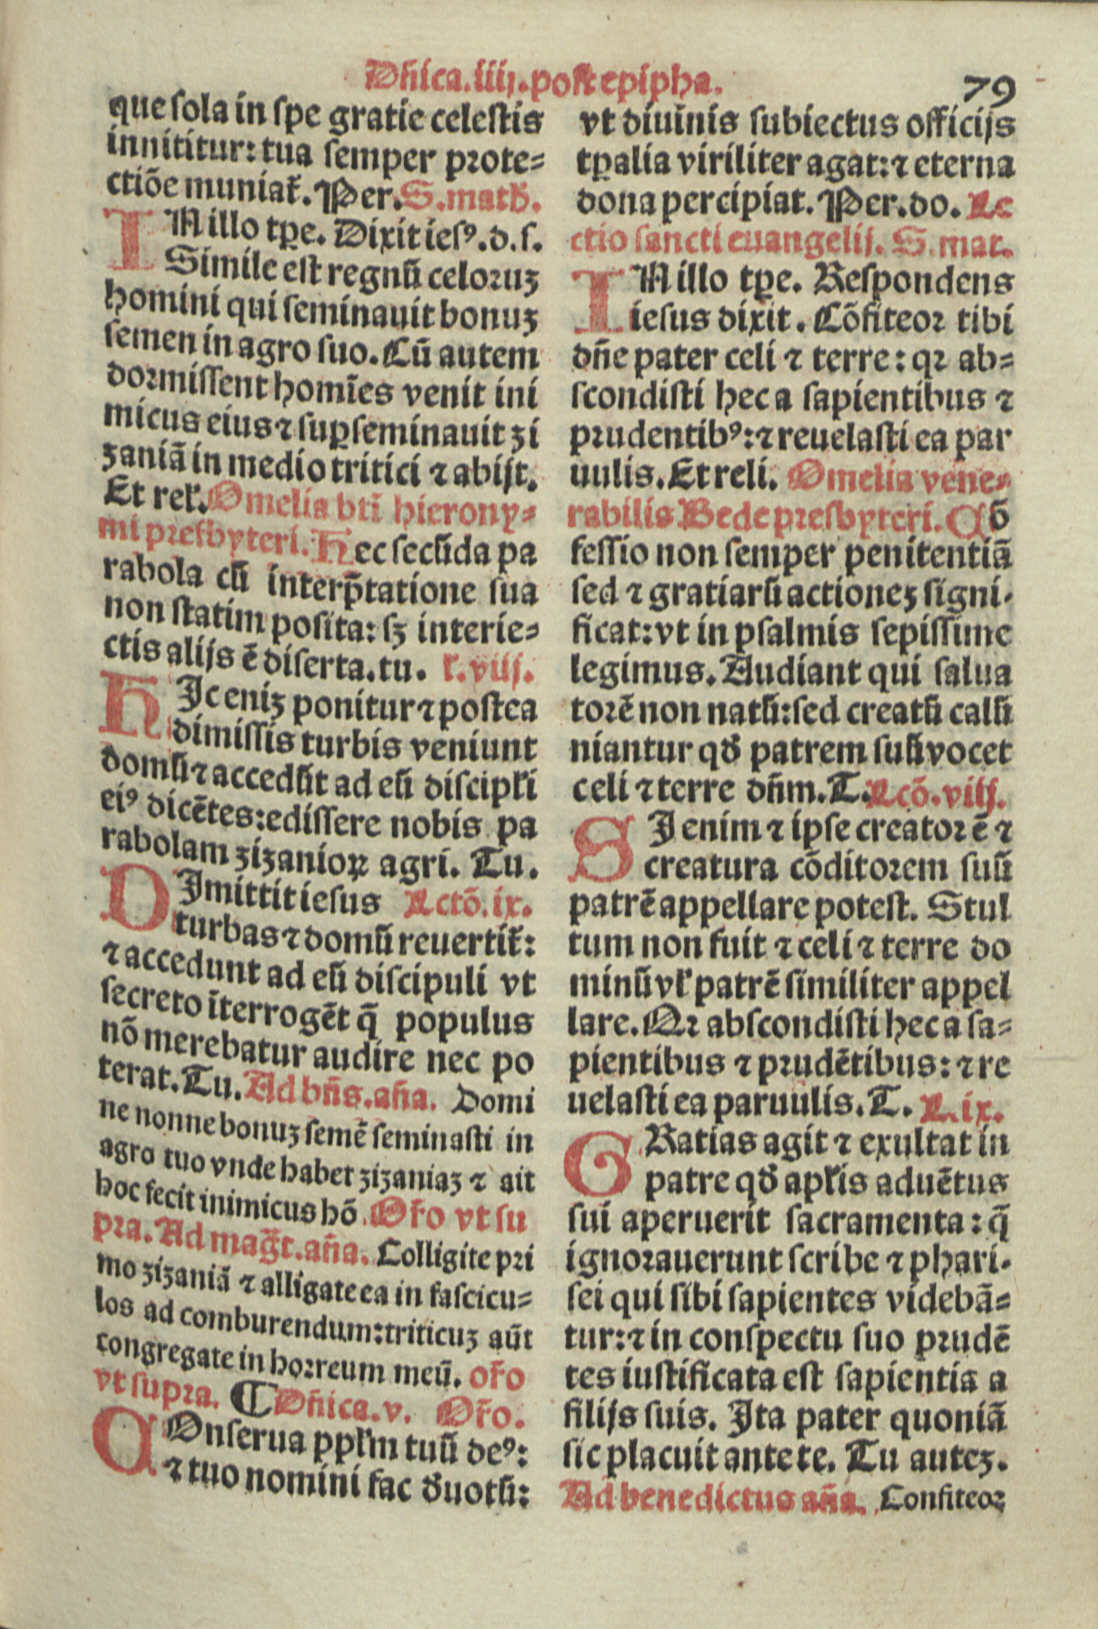 Dñica.iiij.post epipha.
79
que sola in spe gratie celestis
innititur: tua semper prote⸗
ctiõe muniat̃. Per. S. math̃.
IN illo tp̃e. Dixit iesꝰ.d.s.
Simile est regnũ celoruꝫ
homini qui seminauit bonuꝫ
semen in agro suo. Cũ autem
dormissent homĩes venit ini
micus eius ⁊ suꝑseminauit ꝫi
ꝫaniã in medio tritici ⁊ abijt.
Et rel̃. Omelia bti̇̃ hierony⸗
mi presbyteri. Hec secũda pa
rabola cũ interp̃tatione sua
non statim posita: sꝫ interie⸗
ctis alijs ẽ diserta. tu. l̃. viij.
HIc eniꝫ ponitur ⁊ postea
dimissis turbis veniunt
domũ ⁊ accedũt ad eũ discipl̃i
eiꝰ dicẽtes: edissere nobis pa
rabolam ꝫiꝫanioꝝ agri. Tu.
DImittit iesus Lctõ. ix.
turbas ⁊ domũ reuertit̃:
⁊ accedunt ad eũ discipuli vt
secreto ĩterrogẽt q̃ populus
nõ merebatur audire nec po
terat. Tu. Ad bñs. aña. Domi
ne nonne bonuꝫ semẽ seminasti in
agro tuo vnde habet ꝫiꝫaniaꝫ ⁊ ait
hoc fecit inimicus hõ. Or̃o vt su
pra. Ad mag̃t. aña. Colligite pri
mo ꝫiꝫaniã ⁊ alligate ea in fascicu⸗
los ad comburendum: triticuꝫ aũt
congregate in horreum meũ. or̃o
vt supra. ¶ Dñica. v. Or̃o.
COnserua ppl̃m tuũ deꝰ:
⁊ tuo nomini fac d̃uotũ:
vt diuinis subiectus officijs
tꝑalia viriliter agat: ⁊ eterna
dona percipiat. Per. do. Le
ctio sancti euangelij. S. mat.
IN illo tp̃e. Respondens
iesus dixit. Cõfiteor tibi
dñe pater celi ⁊ terre: qꝛ ab⸗
scondisti hec a sapientibus ⁊
prudentibꝰ: ⁊ reuelasti ea par
uulis. Et reli. Omelia vene⸗
rabilis Bede presbyteri. Cõ
fessio non semper penitentiã
sed ⁊ gratiarũ actioneꝫ signi⸗
ficat: vt in psalmis sepissime
legimus. Audiant qui salua
torẽ non natũ: sed creatũ calũ
niantur qd̃ patrem suũ vocet
celi ⁊ terre dñm. T. Lcõ. viij.
SI enim ⁊ ipse creator ẽ ⁊
creatura cõditorem suũ
patrẽ appellare potest. Stul
tum non fuit ⁊ celi ⁊ terre do
minũ vl̃ patrẽ similiter appel
lare. Qꝛ abscondisti hec a sa⸗
pientibus ⁊ prudẽtibus: ⁊ re
uelasti ea paruulis. T. L. ix.
GRatias agit ⁊ exultat in
patre qd̃ apl̃is aduẽtus
sui aperuerit sacramenta: q̃
ignorauerunt scribe ⁊ phari⸗
sei qui sibi sapientes videbã⸗
tur: ⁊ in conspectu suo prudẽ
tes iustificata est sapientia a
filijs suis. Ita pater quoniã
sic placuit ante te. Tu auteꝫ.
Ad benedictus aña. Confiteor